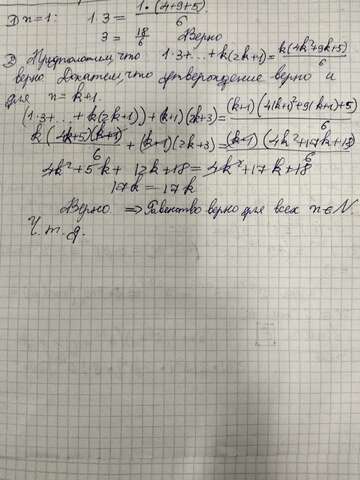 1) n=1: 1·3 = \frac{1·(4+9+5)}{6}
3 = \frac{18}{6} Верно
2) Предположим, что 1·3+...+k(2k+1)=\frac{k(4k²+9k+5)}{6}
верно. Докажем, что утверждение верно и
для n=k+1.
(1·3+...+k(2k+1))+(k+1)(2k+3)=\frac{(k+1)(4(k+1)²+9(k+1)+5)}{6}
\frac{k(4k+5)(k+1)}{6}+(k+1)(2k+3)=\frac{(k+1)(4k²+17k+18)}{6}
4k²+5k+12k+18=4k²+17k+18
17k=17k
Верно. ⇒ Равенство верно для всех n∈N.
Ч.т.д.